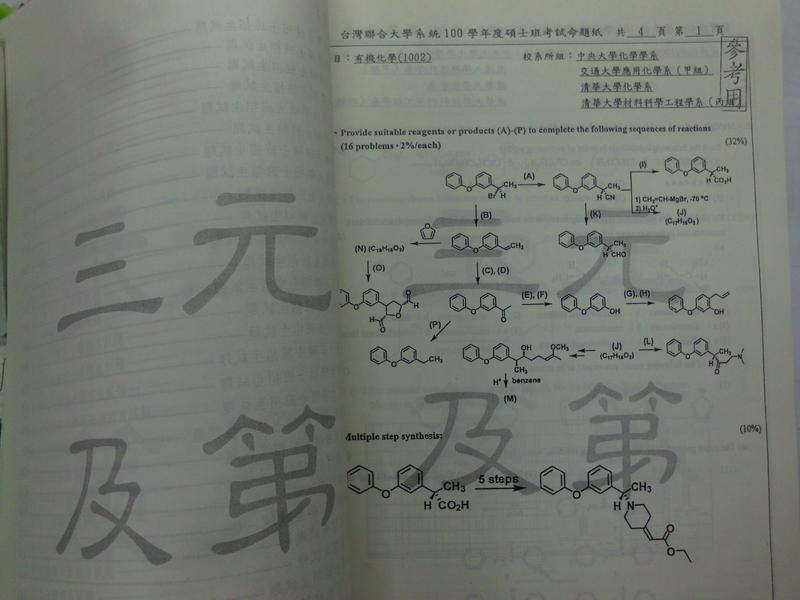 台灣聯合大學系統100學年度碩士班考試命題紙 共 4 頁 第 1 頁
目：有機化學(1002)
校系所組：中央大學化學學系
交通大學應用化學系（甲組）
清華大學化學系
清華大學材料科學工程學系（丙組
參考用
Provide suitable reagents or products (A)-(P) to complete the following sequences of reactions (32%)
(16 problems，2%/each)
CH3 (A) CH3 (I) CH3
Br H CN H CO2H
1) CH2=CH-MgBr, -78 ºC
2) H3O+
(B) (K) (J)
(C17H16O2)
(N) (C18H16O2) CH2 CH3
H CHO
(O) (C), (D)
(E), (F) (G), (H)
OH OH
(P)
OH OCH3 (J) (L) CH3
(C17H16O2)
CH3 CH3
H+ benzene
(M)
Multiple step synthesis: (10%)
CH3 5 steps CH3
H CO2H H N
O
O
三元
及第
三元
及第